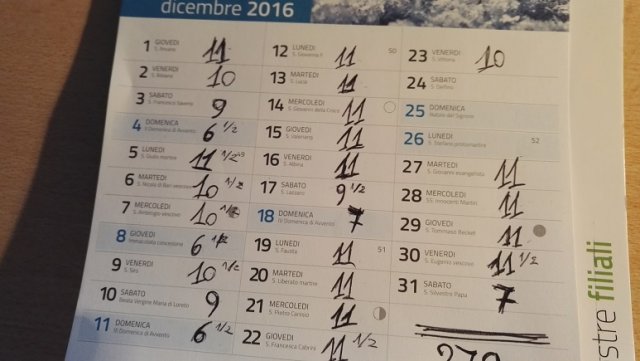 dicembre 2016
1 GIOVEDÌ 11
S. Ansano
2 VENERDÌ 10
S. Bibiana
3 SABATO 9
S. Francesco Saverio
4 DOMENICA 6 1/2
II Domenica di Avvento
5 LUNEDÌ 11 1/2
S. Giulio martire
6 MARTEDÌ 10 1/2
S. Nicola di Bari vescovo
7 MERCOLEDÌ 10
S. Ambrogio vescovo
8 GIOVEDÌ 6 1/2
Immacolata concezione
9 VENERDÌ 10 1/2
S. Siro
10 SABATO 9
Beata Vergine Maria di Loreto
11 DOMENICA 6 1/2
III Domenica di Avvento
12 LUNEDÌ 11 50
S. Giovanna F.
13 MARTEDÌ 11
S. Lucia
14 MERCOLEDÌ 11
S. Giovanni della Croce
15 GIOVEDÌ 11
S. Valeriano
16 VENERDÌ 11
S. Albina
17 SABATO 9 1/2
S. Lazzaro
18 DOMENICA 7
IV Domenica di Avvento
19 LUNEDÌ 11 51
S. Fausta
20 MARTEDÌ 11
S. Liberato martire
21 MERCOLEDÌ 11
S. Pietro Canisio
22 GIOVEDÌ 11 1/2
S. Francesca Cabrini
23 VENERDÌ 10
S. Vittoria
24 SABATO
S. Delfino
25 DOMENICA
Natale del Signore
26 LUNEDÌ 52
S. Stefano protomartire
27 MARTEDÌ 11
S. Giovanni evangelista
28 MERCOLEDÌ 11
SS. Innocenti Martiri
29 GIOVEDÌ 11
S. Tommaso Becket
30 VENERDÌ 11 1/2
S. Eugenio vescovo
31 SABATO 7
S. Silvestro Papa
stre filiali